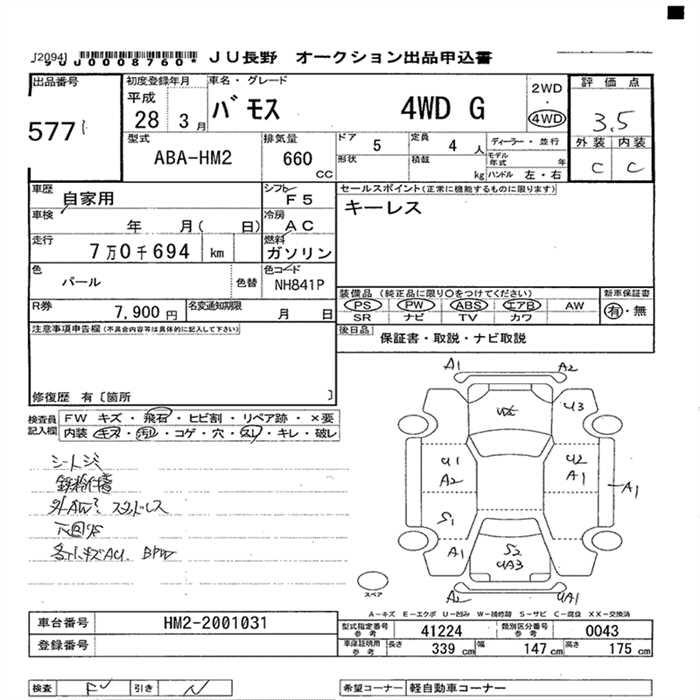 J2094 *9JJ0008760* JU長野 オークション出品申込書
出品番号 初度登録年月 車名・グレード 評価点
577 平成 28 3月 バモス 4WD G 2WD・4WD 3.5
外装 内装
C C
型式 排気量 ドア 5 定員 4人 ディーラー・並行
ABA-HM2 660 CC 形状 積載 kg モデル年式 年
ハンドル 左・右
車歴 自家用 シフト F5 セールスポイント(正常に機能するものに限ります)
車検 年 月( 日) 冷房 AC キーレス
走行 7万0千694 km 燃料 ガソリン
色 パール 色替 色コード NH841P
装備品 (純正品に限り○をつけてください) 新車保証書
PS PW ABS エアB AW 有・無
SR ナビ TV カワ
R券 7,900円 名変通知期限 月 日
後日品 保証書・取説・ナビ取説
注意事項申告欄(不具合内容等は具体的に記入して下さい)
修復歴 有〔箇所 〕
検査員記入欄 FW キズ・飛石・ヒビ割・リペア跡・×要
内装 キズ・汚れ・コゲ・穴・スレ・キレ・破レ
A1 A2
U3
U1 U2
A2 A1
A1
S1
A1 S2
UA3
A2 UA1
シートシミ
外AW スタッドレス
下回りS
スペア
A-キズ E-エクボ U-凹み W-補修跡 S-サビ C-腐食 XX-交換済
車台番号 HM2-2001031
登録番号
型式指定番号 参考 41224 類別区分番号 参考 0043
車庫証明用 参考 長さ 339cm 幅 147cm 高さ 175cm
検査 引き 希望コーナー 軽自動車コーナー